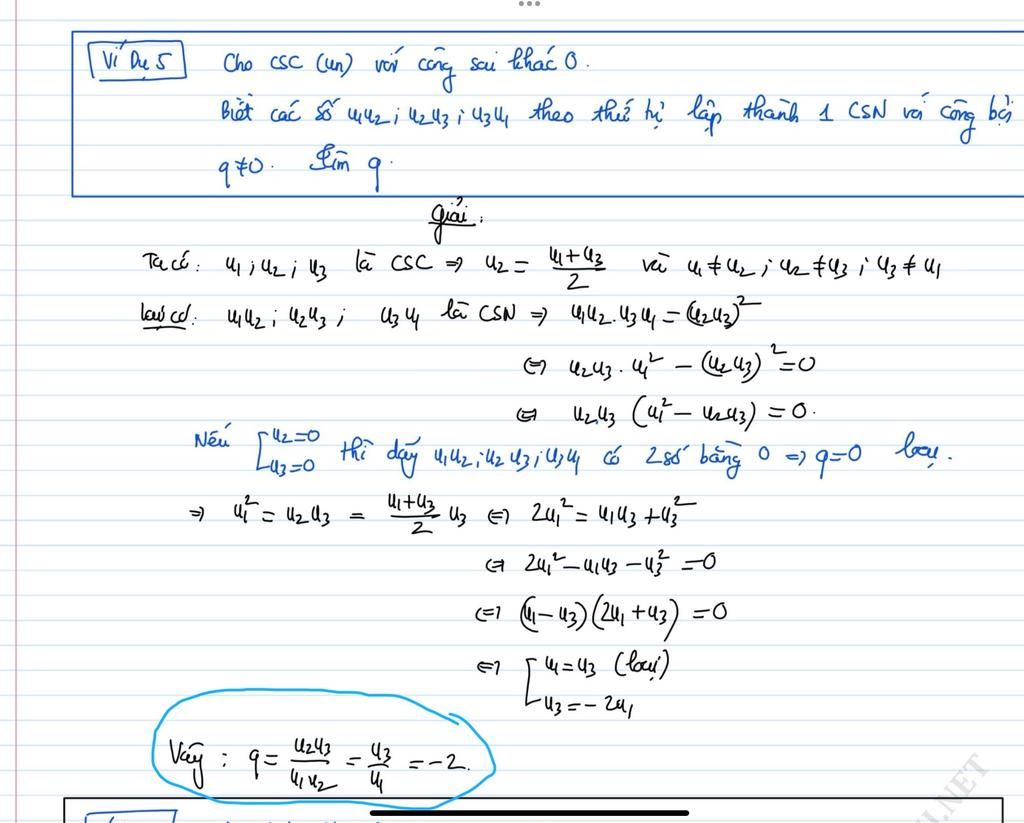 Ví Dụ 5 Cho CSC (un) với công sai khác 0.
Biết các số u1u2 ; u2u3 ; u3u1 theo thứ tự lập thành 1 CSN với công bội
q≠0. Tìm q.
giải:
Ta có: u1 ; u2 ; u3 là CSC ⇒ u2 = (u1+u3)/2 và u1 ≠ u2 ; u2 ≠ u3 ; u3 ≠ u1
Lại có: u1u2 ; u2u3 ; u3u1 là CSN ⇒ u1u2.u3u1 = (u2u3)²
⇔ u2u3 . u1² − (u2u3)² = 0
⇔ u2u3 (u1² − u2u3) = 0.
Nếu [u2=0
u3=0 thì dãy u1u2 ; u2u3 ; u3u1 có 2 số bằng 0 ⇒ q=0 loại.
⇒ u1² = u2u3 = (u1+u3)/2 u3 ⇔ 2u1² = u1u3 + u3²
⇔ 2u1² − u1u3 − u3² = 0
⇔ (u1 − u3)(2u1 + u3) = 0
⇔ [u1 = u3 (loại)
u3 = − 2u1
Vậy : q = u2u3/u1u2 = u3/u1 = −2.